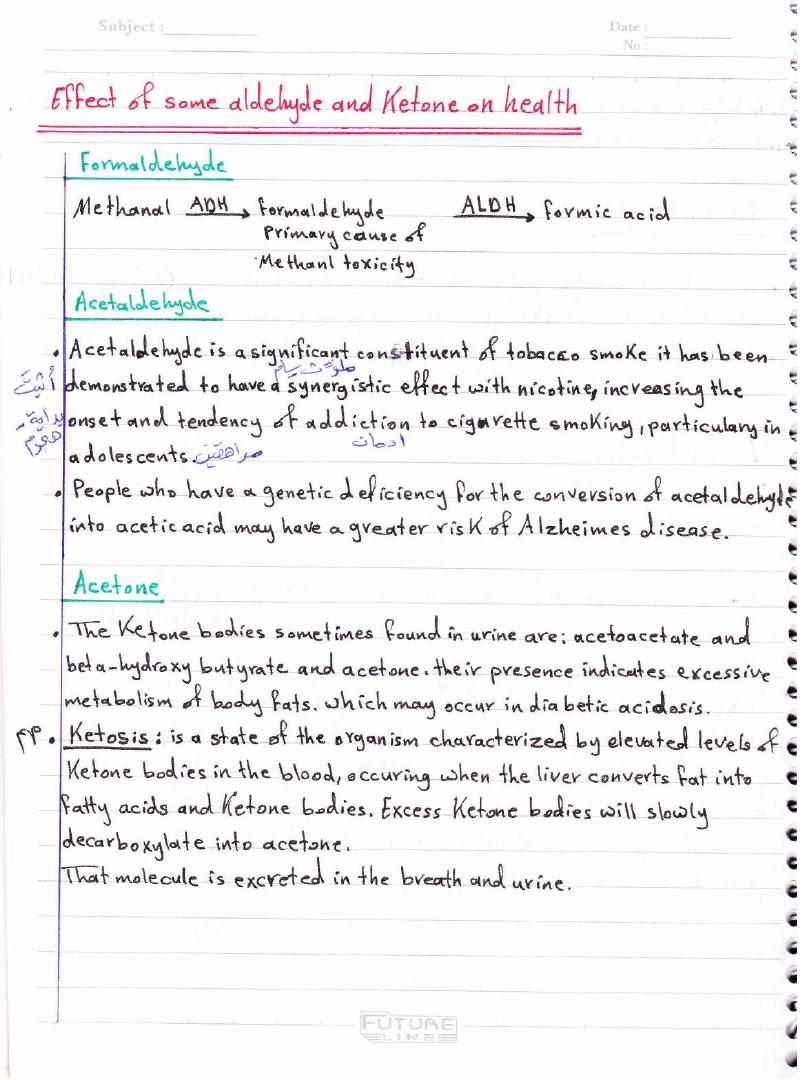 Subject :
Date :
No :
Effect of some aldehyde and Ketone on health
Formaldehyde
Methanal ADH → formaldehyde ALDH → formic acid
Primary cause of
Methanl toxicity
Acetaldehyde
• Acetaldehyde is a significant constituent of tobacco smoke it has been
demonstrated to have a synergistic effect with nicotine, increasing the
أثبت
onset and tendency of addiction to cigarette smoking, particulary in
بداية،
هجوم
ادمان
adolescents. مراهقين
• People who have a genetic deficiency for the conversion of acetaldehyde
into acetic acid may have a greater risk of Alzheimes disease.
Acetone
• The Ketone bodies sometimes found in urine are: acetoacetate and
beta-hydroxy butyrate and acetone. their presence indicates excessive
metabolism of body fats. which may occur in diabetic acidosis.
• Ketosis: is a state of the organism characterized by elevated levels of
Ketone bodies in the blood, occuring when the liver converts fat into
fatty acids and Ketone bodies. Excess Ketone bodies will slowly
decarboxylate into acetone.
That molecule is excreted in the breath and urine.
FUTURE
LINE